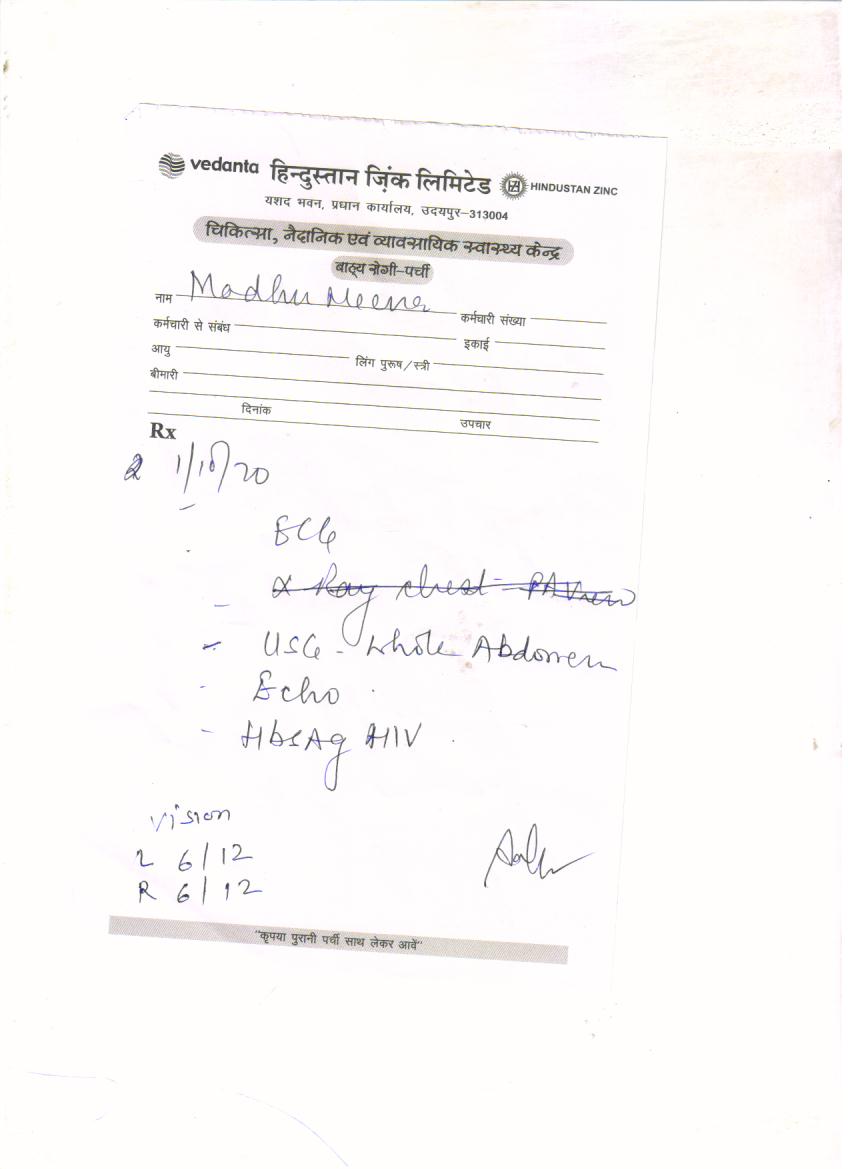 vedanta हिन्दुस्तान ज़िंक लिमिटेड HINDUSTAN ZINC
यशद भवन, प्रधान कार्यालय, उदयपुर–313004
चिकित्सा, नैदानिक एवं व्यावसायिक स्वास्थ्य केन्द्र
बाह्य रोगी–पर्ची
नाम Madhu Meena कर्मचारी संख्या
कर्मचारी से संबंध इकाई
आयु लिंग पुरूष/स्त्री
बीमारी
दिनांक उपचार
Rx
1/10/20
ECG
X Ray chest - PA View
- USG - Whole Abdomen
- Echo
- HbsAg HIV
Vision
L 6/12
R 6/12
"कृपया पुरानी पर्ची साथ लेकर आवें"